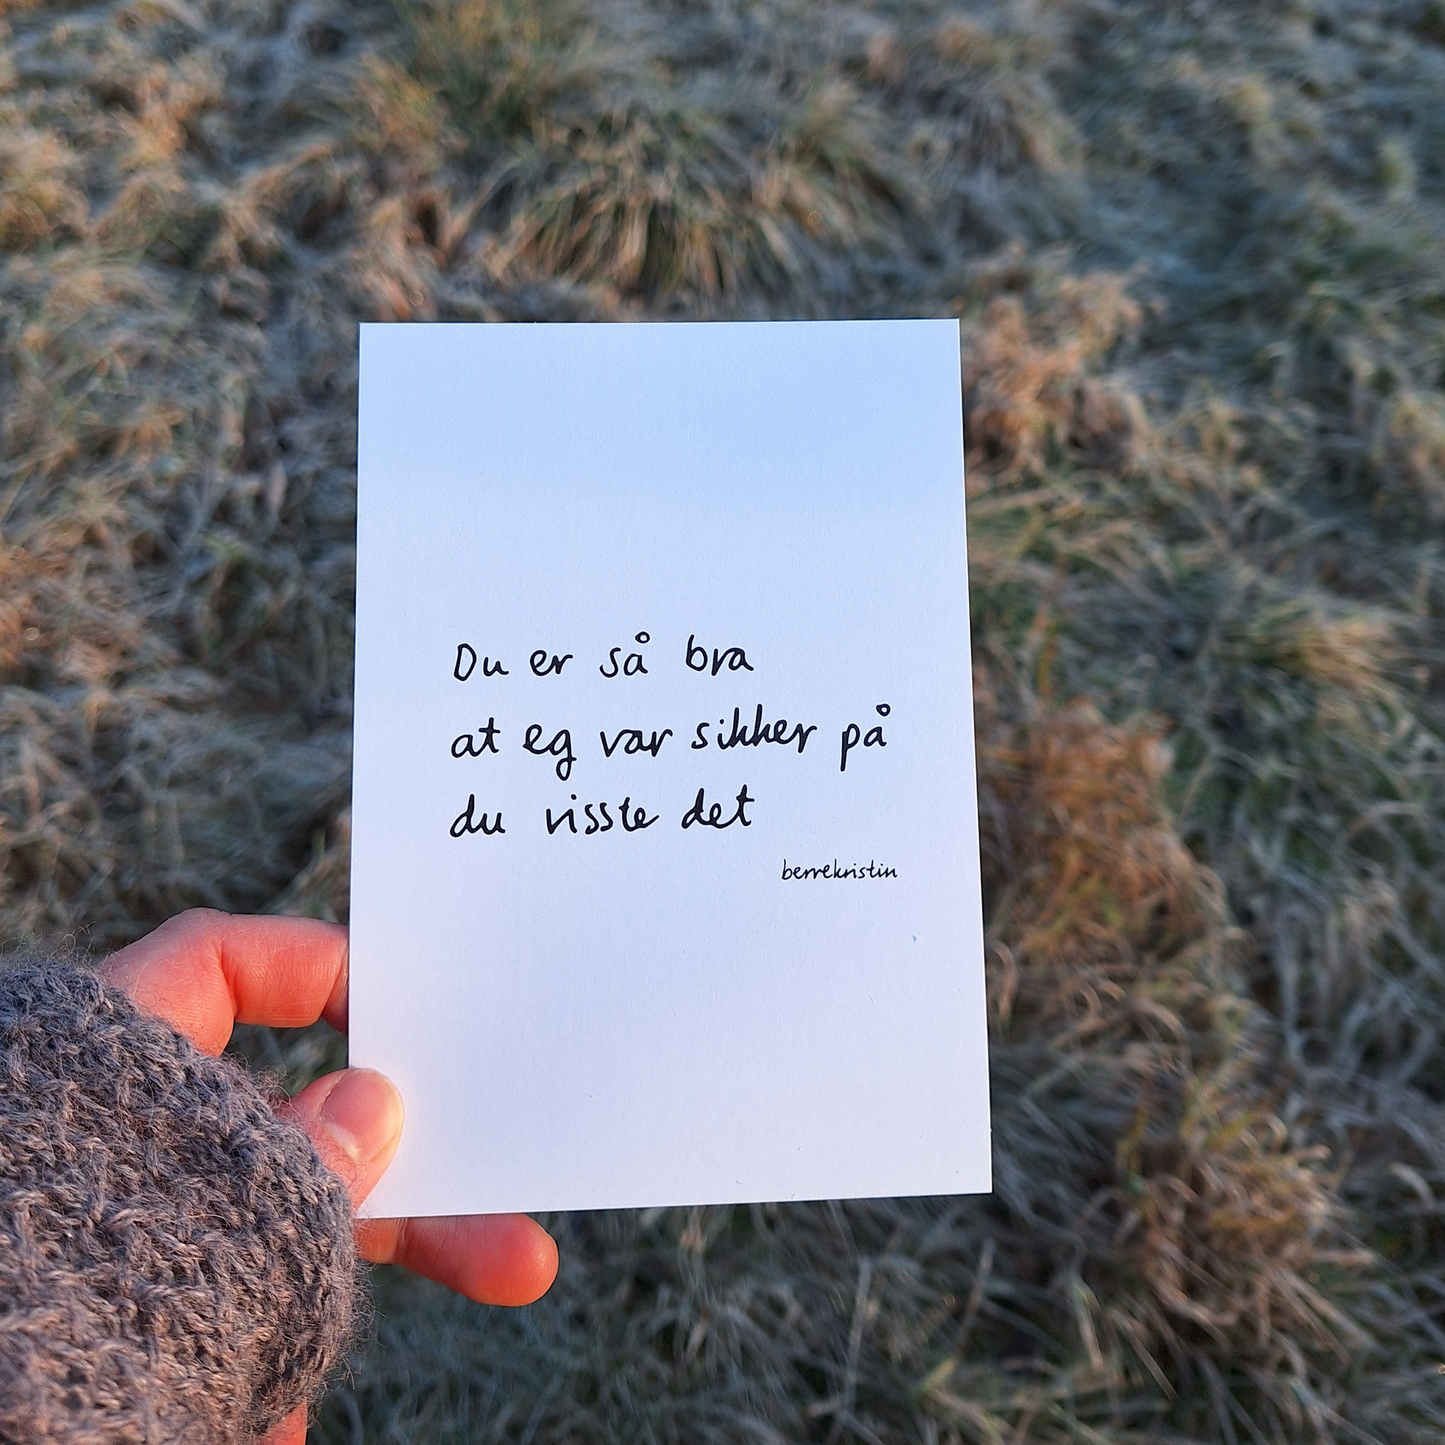 Du er så bra
at eg var sikker på
du visste det
berrekristin